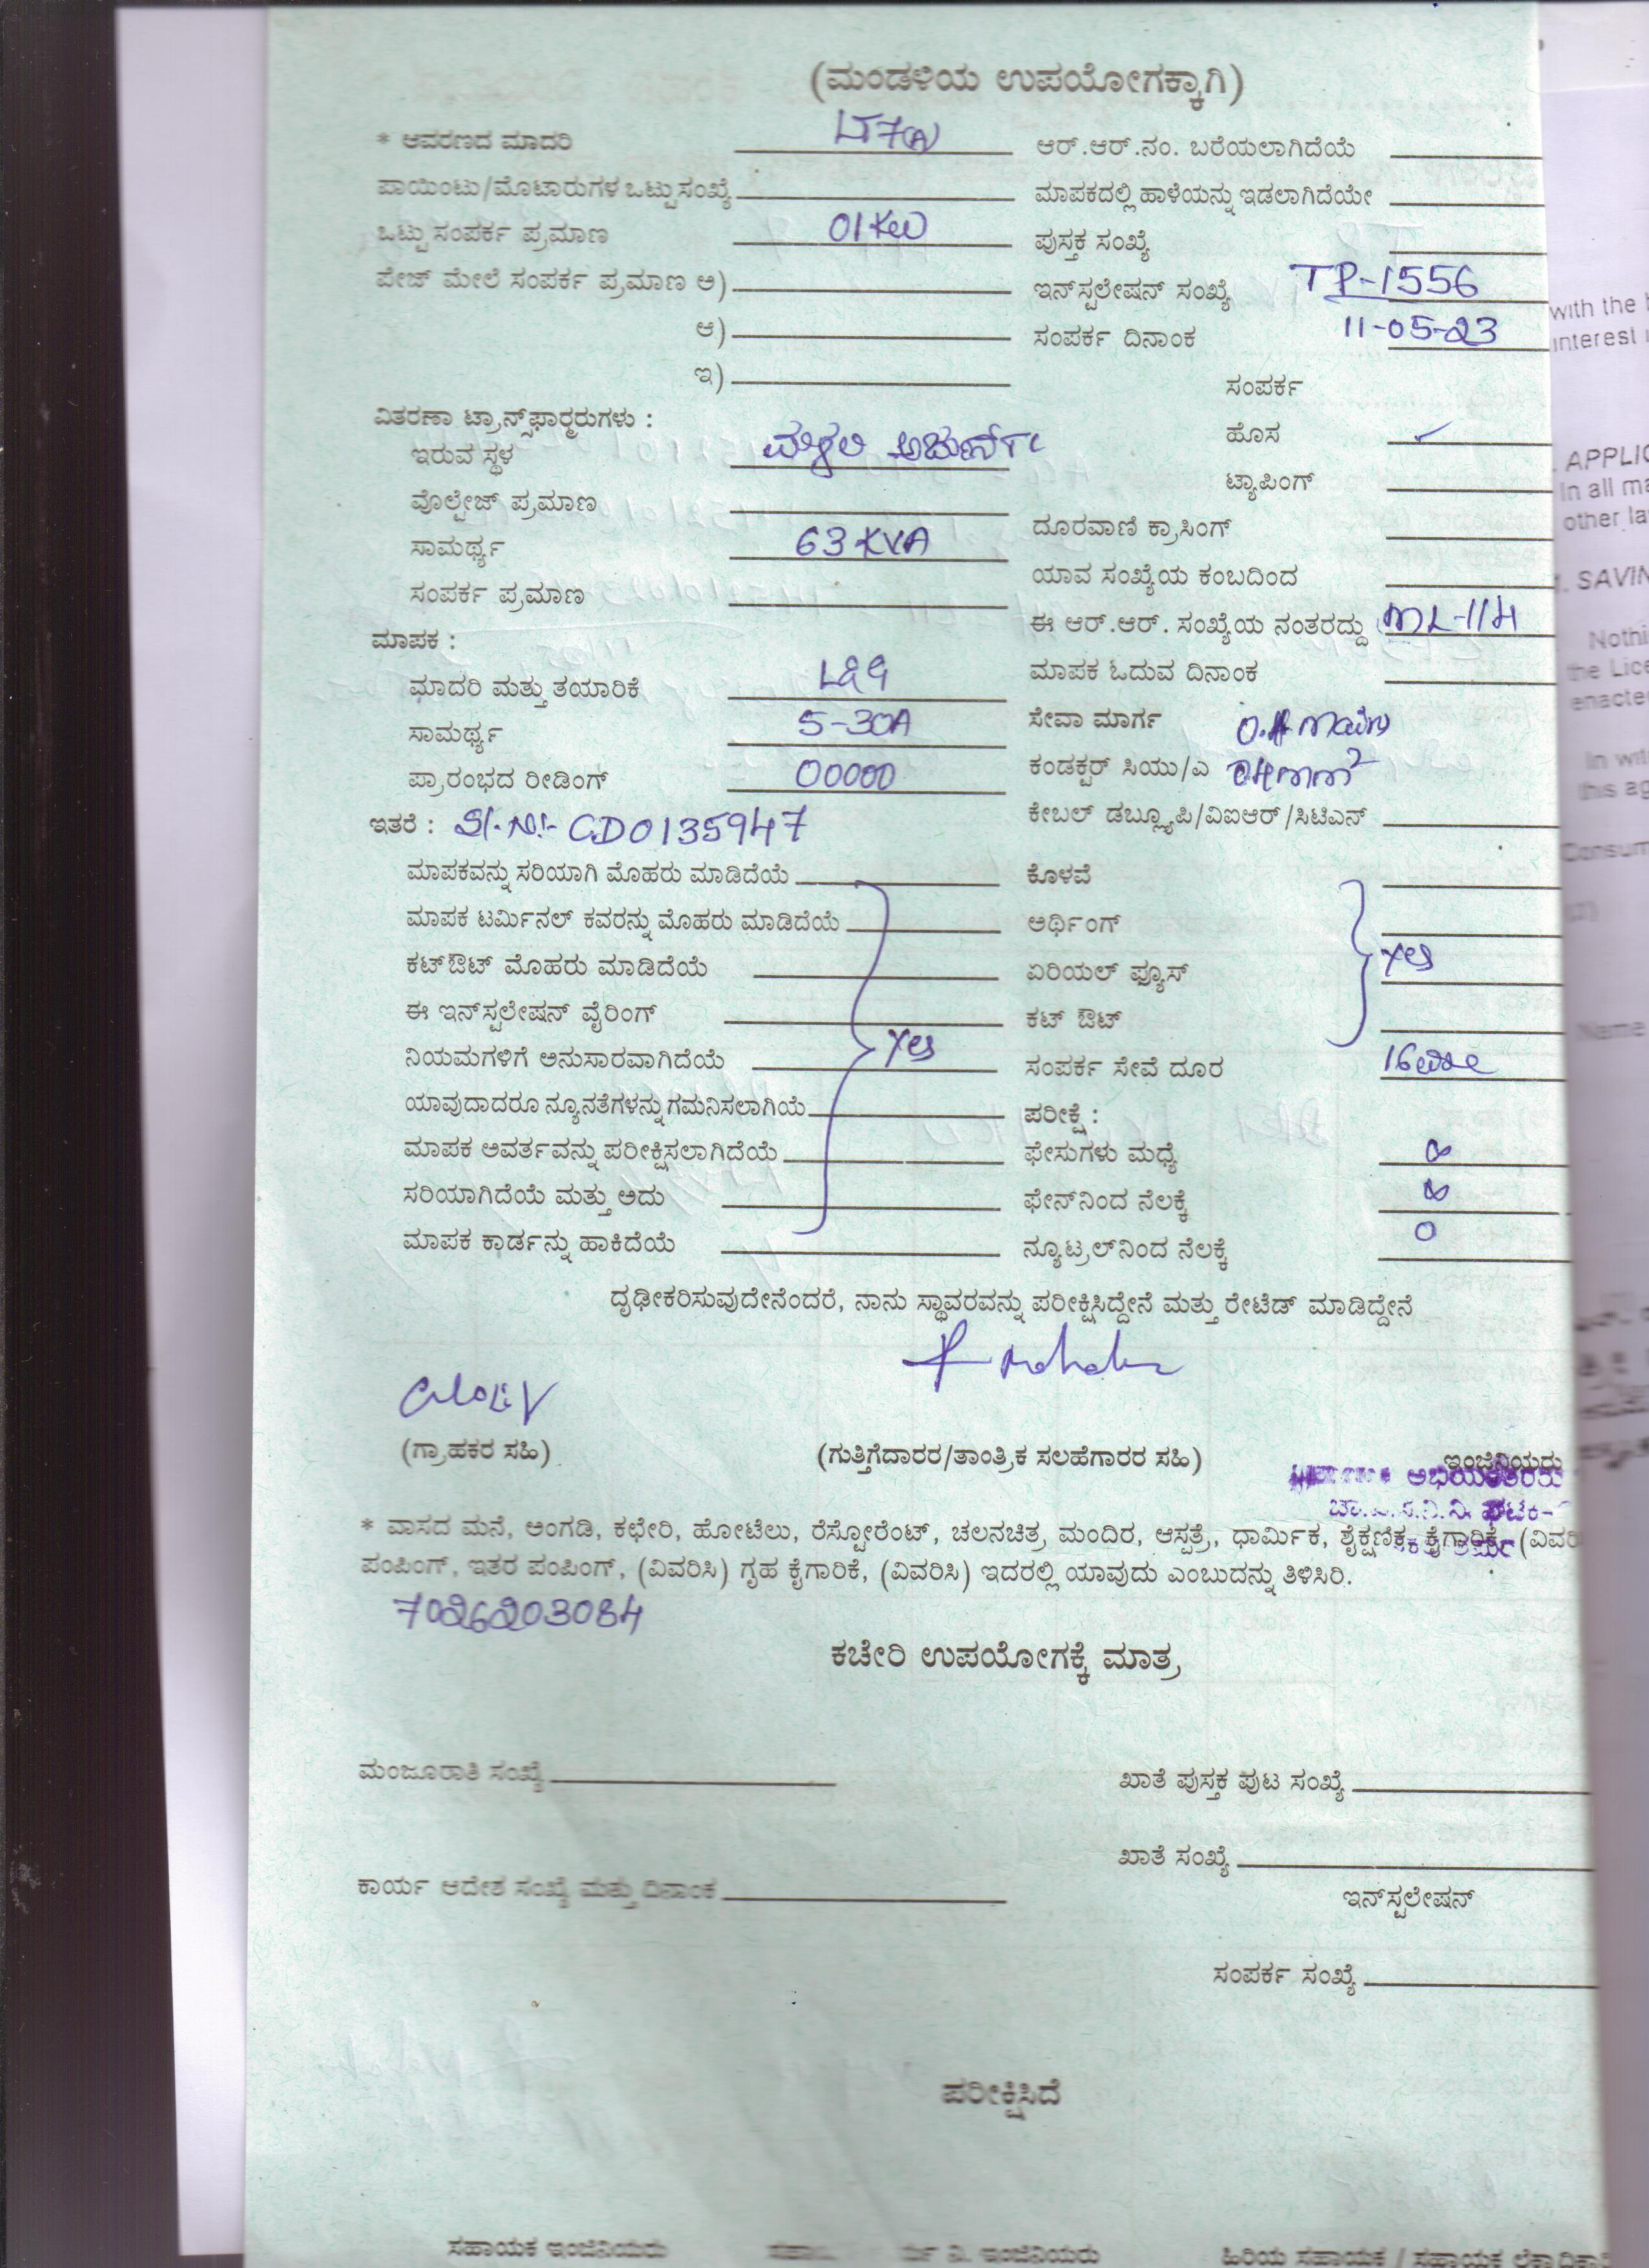 (ಮಂಡಳಿಯ ಉಪಯೋಗಕ್ಕಾಗಿ)
* ಆವರಣದ ಮಾದರಿ LT7(A) ಆರ್.ಆರ್.ನಂ. ಬರೆಯಲಾಗಿದೆಯೆ
ಪಾಯಿಂಟು/ಮೊಟಾರುಗಳ ಒಟ್ಟು ಸಂಖ್ಯೆ ಮಾಪಕದಲ್ಲಿ ಹಾಳೆಯನ್ನು ಇಡಲಾಗಿದೆಯೇ
ಒಟ್ಟು ಸಂಪರ್ಕ ಪ್ರಮಾಣ 01KW ಪುಸ್ತಕ ಸಂಖ್ಯೆ
ಪೇಜ್ ಮೇಲೆ ಸಂಪರ್ಕ ಪ್ರಮಾಣ ಅ) ಇನ್‌ಸ್ಟಲೇಷನ್ ಸಂಖ್ಯೆ TP-1556
ಆ) ಸಂಪರ್ಕ ದಿನಾಂಕ 11-05-23
ಇ) ಸಂಪರ್ಕ
ವಿತರಣಾ ಟ್ರಾನ್ಸ್‌ಫಾರ್ಮರುಗಳು :
ಇರುವ ಸ್ಥಳ ಹೊಸ ✓
ವೊಲ್ಟೇಜ್ ಪ್ರಮಾಣ ಟ್ಯಾಪಿಂಗ್
ಸಾಮರ್ಥ್ಯ 63KVA ದೂರವಾಣಿ ಕ್ರಾಸಿಂಗ್
ಸಂಪರ್ಕ ಪ್ರಮಾಣ ಯಾವ ಸಂಖ್ಯೆಯ ಕಂಬದಿಂದ
ಮಾಪಕ : ಈ ಆರ್.ಆರ್. ಸಂಖ್ಯೆಯ ನಂತರದ್ದು ML-114
ಮಾದರಿ ಮತ್ತು ತಯಾರಿಕೆ L&G ಮಾಪಕ ಓದುವ ದಿನಾಂಕ
ಸಾಮರ್ಥ್ಯ 5-30A ಸೇವಾ ಮಾರ್ಗ O.H Mains
ಪ್ರಾರಂಭದ ರೀಡಿಂಗ್ 00000 ಕಂಡಕ್ಟರ್ ಸಿಯು/ಎ
ಇತರೆ : Sl.No:- CD0135947 ಕೇಬಲ್ ಡಬ್ಲ್ಯೂಪಿ/ವಿಐಆರ್/ಸಿಟಿಎನ್
ಮಾಪಕವನ್ನು ಸರಿಯಾಗಿ ಮೊಹರು ಮಾಡಿದೆಯೆ ಕೊಳವೆ
ಮಾಪಕ ಟರ್ಮಿನಲ್ ಕವರನ್ನು ಮೊಹರು ಮಾಡಿದೆಯೆ ಅರ್ಥಿಂಗ್
ಕಟ್‌ಔಟ್ ಮೊಹರು ಮಾಡಿದೆಯೆ ಏರಿಯಲ್ ಫ್ಯೂಸ್ Yes
ಈ ಇನ್‌ಸ್ಟಲೇಷನ್ ವೈರಿಂಗ್ ಕಟ್ ಔಟ್
ನಿಯಮಗಳಿಗೆ ಅನುಸಾರವಾಗಿದೆಯೆ Yes ಸಂಪರ್ಕ ಸೇವೆ ದೂರ
ಯಾವುದಾದರೂ ನ್ಯೂನತೆಗಳನ್ನು ಗಮನಿಸಲಾಗಿಯೆ ಪರೀಕ್ಷೆ :
ಮಾಪಕ ಅವರ್ತವನ್ನು ಪರೀಕ್ಷಿಸಲಾಗಿದೆಯೆ ಫೇಸುಗಳು ಮಧ್ಯೆ ∞
ಸರಿಯಾಗಿದೆಯೆ ಮತ್ತು ಅದು ಫೇನ್‌ನಿಂದ ನೆಲಕ್ಕೆ ∞
ಮಾಪಕ ಕಾರ್ಡನ್ನು ಹಾಕಿದೆಯೆ ನ್ಯೂಟ್ರಲ್‌ನಿಂದ ನೆಲಕ್ಕೆ 0
ದೃಢೀಕರಿಸುವುದೇನೆಂದರೆ, ನಾನು ಸ್ಥಾವರವನ್ನು ಪರೀಕ್ಷಿಸಿದ್ದೇನೆ ಮತ್ತು ರೇಟೆಡ್ ಮಾಡಿದ್ದೇನೆ
(ಗ್ರಾಹಕರ ಸಹಿ) (ಗುತ್ತಿಗೆದಾರರ/ತಾಂತ್ರಿಕ ಸಲಹೆಗಾರರ ಸಹಿ) ಇಂಜಿನಿಯರು
* ವಾಸದ ಮನೆ, ಅಂಗಡಿ, ಕಛೇರಿ, ಹೋಟೆಲು, ರೆಸ್ಟೋರೆಂಟ್, ಚಲನಚಿತ್ರ ಮಂದಿರ, ಆಸ್ಪತ್ರೆ, ಧಾರ್ಮಿಕ, ಶೈಕ್ಷಣಿಕ, ಕೈಗಾರಿಕೆ
ಪಂಪಿಂಗ್, ಇತರ ಪಂಪಿಂಗ್, (ವಿವರಿಸಿ) ಗೃಹ ಕೈಗಾರಿಕೆ, (ವಿವರಿಸಿ) ಇದರಲ್ಲಿ ಯಾವುದು ಎಂಬುದನ್ನು ತಿಳಿಸಿರಿ.
7026203084
ಕಚೇರಿ ಉಪಯೋಗಕ್ಕೆ ಮಾತ್ರ
ಮಂಜೂರಾತಿ ಸಂಖ್ಯೆ ಖಾತೆ ಪುಸ್ತಕ ಪುಟ ಸಂಖ್ಯೆ
ಖಾತೆ ಸಂಖ್ಯೆ
ಕಾರ್ಯ ಆದೇಶ ಸಂಖ್ಯೆ ಮತ್ತು ದಿನಾಂಕ ಇನ್‌ಸ್ಟಲೇಷನ್
ಸಂಪರ್ಕ ಸಂಖ್ಯೆ
ಪರೀಕ್ಷಿಸಿದೆ
ಸಹಾಯಕ ಇಂಜಿನಿಯರು ಇಂಜಿನಿಯರು ಹಿರಿಯ ಸಹಾಯಕ / ಸಹಾಯಕ
with the
interest
APPLIC
In all ma
other la
SAVIN
Nothi
the Lice
enacte
In wit
this ag
Consum
Name